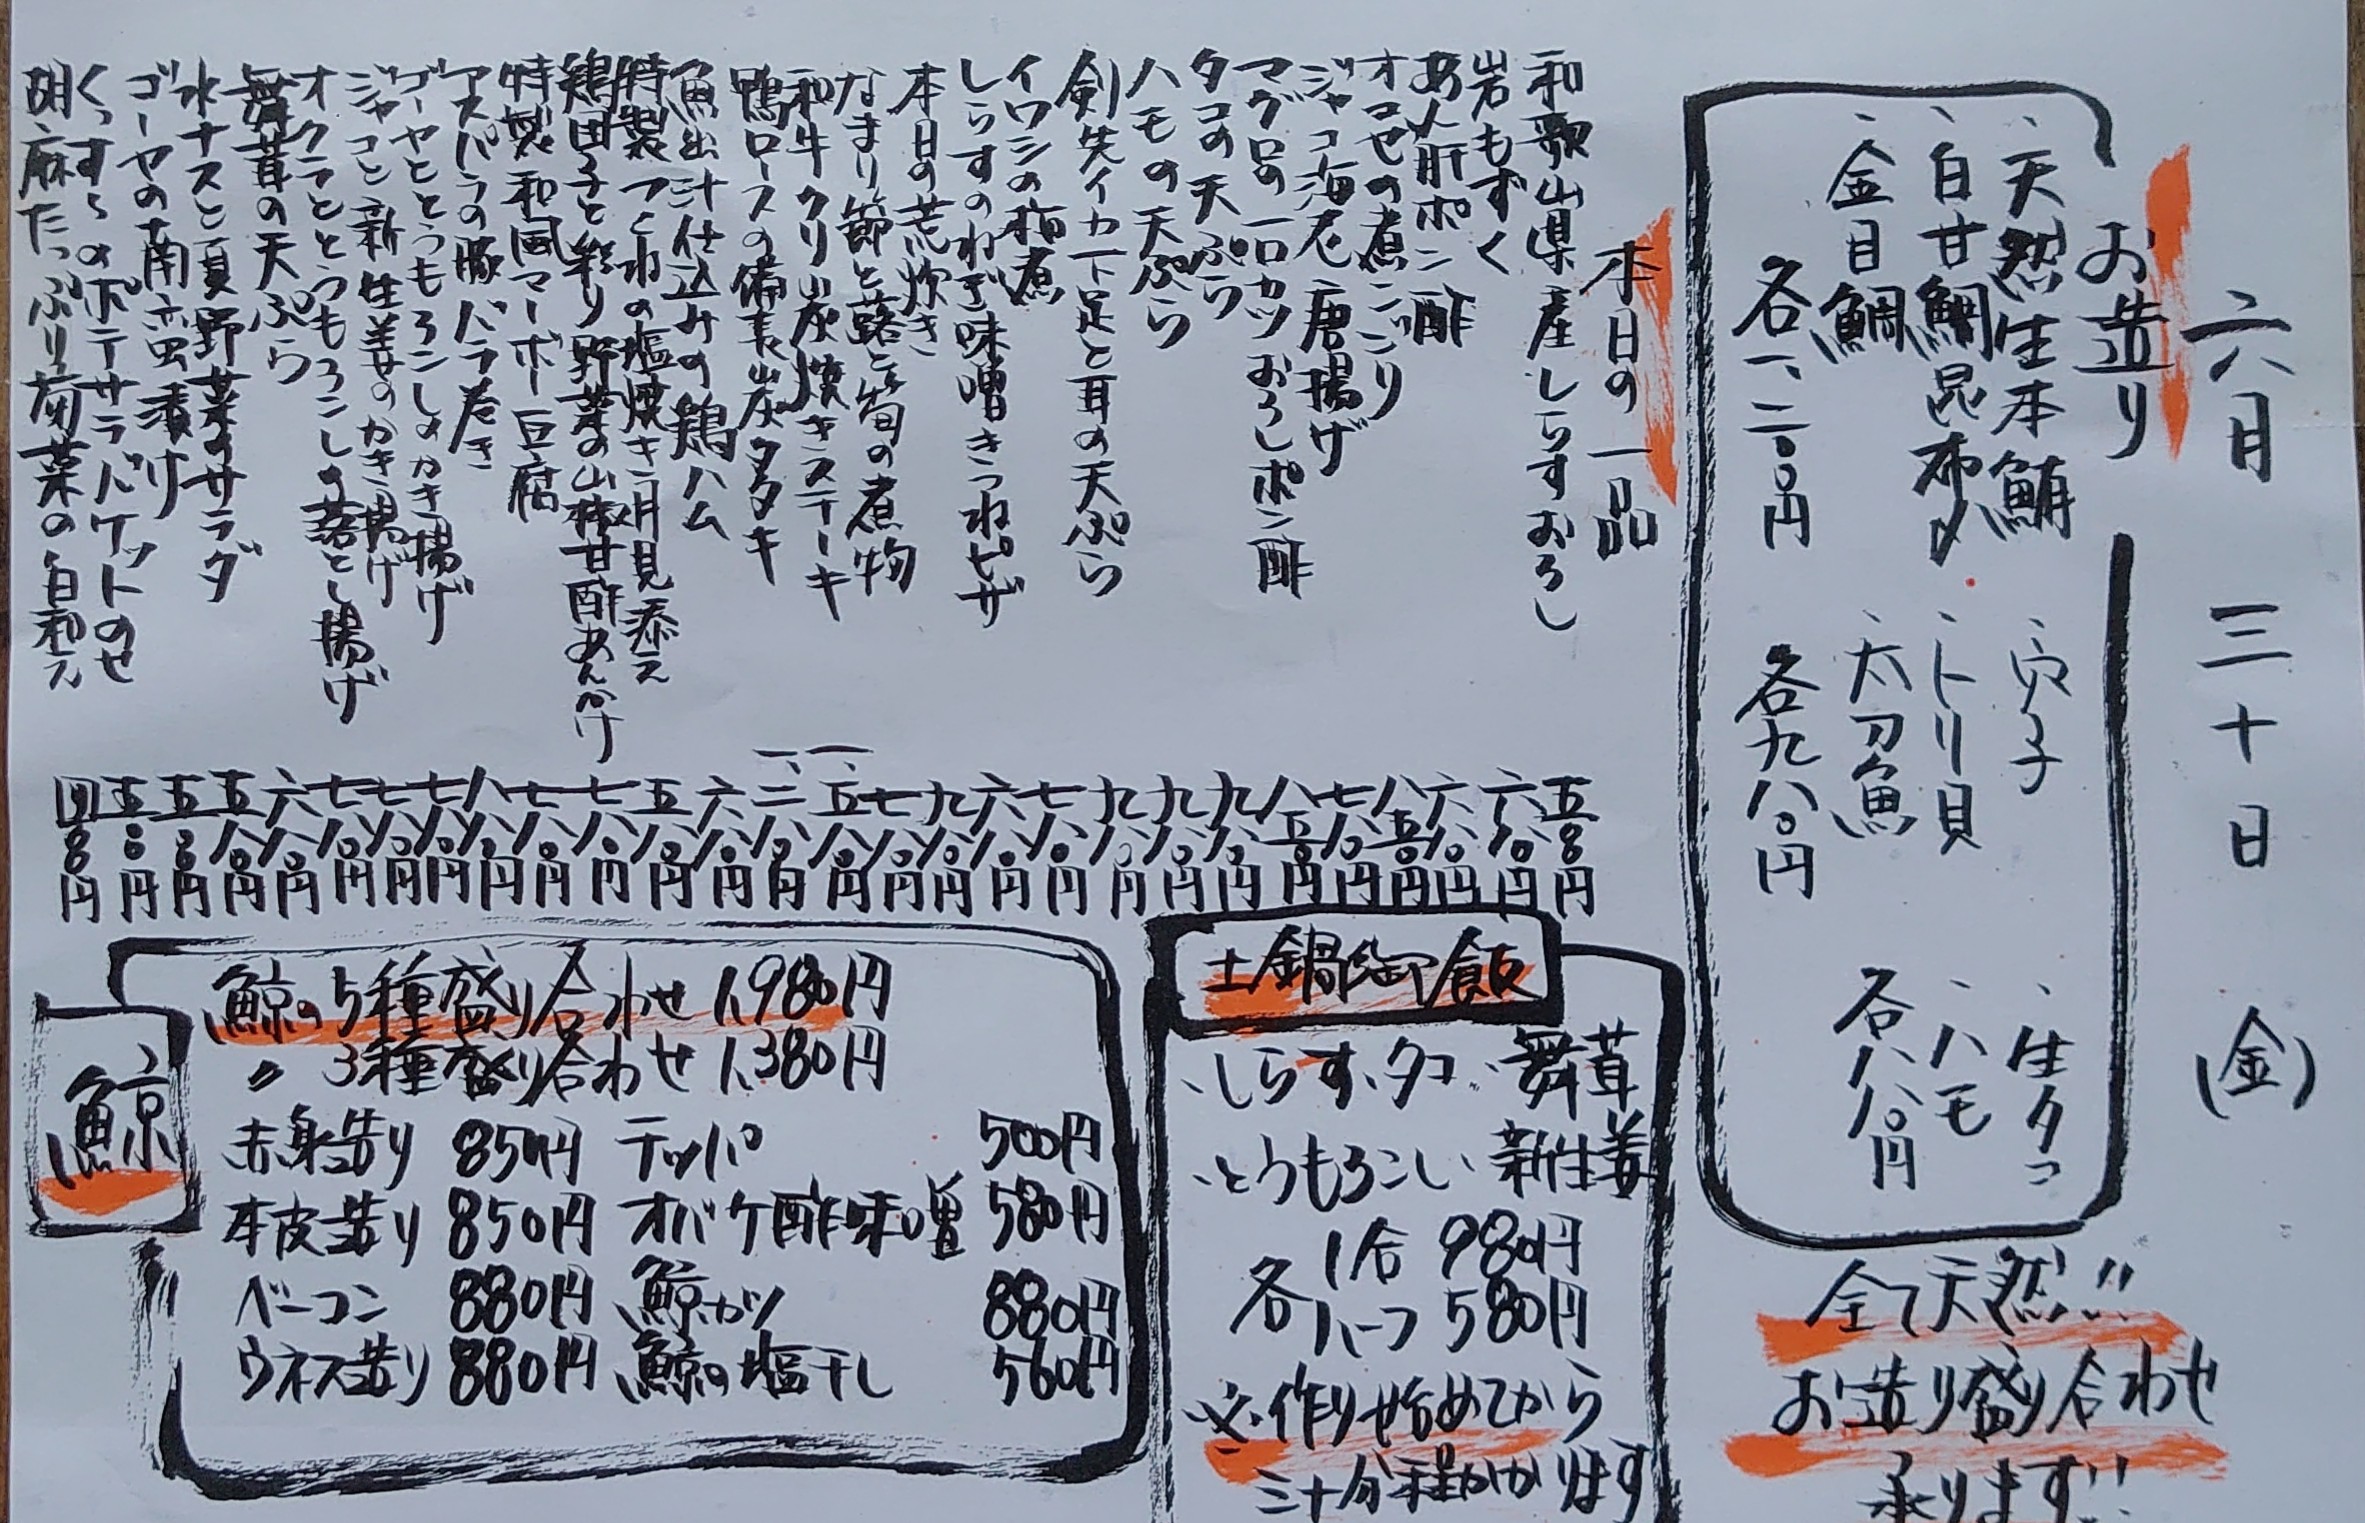 六月三十日(金)
お造り
、天然生本鮪
、白甘鯛昆布〆
、金目鯛
各一、二〇〇円
、穴子
、トリ貝
、太刀魚
各九八〇円
、生タコ
、ハモ
各八八〇円
全て天然!!
お造り盛り合わせ
承ります!!
本日の一品
和歌山県産しらすおろし 五〇〇円
岩もずく 六八〇円
あん肝ポン酢 六八〇円
オコゼの煮こごり 八五〇円
ジャコ海老唐揚げ 七八〇円
マグロの一口カツおろしポン酢 八五〇円
タコの天ぷら 九八〇円
ハモの天ぷら 九八〇円
剣先イカ下足と耳の天ぷら 九八〇円
イワシの梅煮 七八〇円
しらすのねぎ味噌きつねピザ 六八〇円
本日の荒炊き 九八〇円
なまり節と蕗と筍の煮物 七八〇円
和牛クリ炭焼きステーキ 一、五八〇円
鴨ロースの備長炭タタキ 一、二八〇円
魚出汁仕込みの鶏ハム 六八〇円
特製つくねの塩焼き月見添え 五八〇円
鶏団子と彩り野菜の山椒甘酢あんかけ 七八〇円
特製和風マーボー豆腐 七八〇円
アスパラの豚バラ巻き 八八〇円
ゴーヤととうもろこしのかき揚げ 七八〇円
ジャコと新生姜のかき揚げ 七八〇円
オクラととうもろこしの落とし揚げ 七八〇円
舞茸の天ぷら 六八〇円
水ナスと夏野菜のサラダ 五八〇円
ゴーヤの南蛮漬け 五〇〇円
くっすんのポテサラバケットのせ 五五〇円
胡麻たっぷり菊菜の白和え 四〇〇円
土鍋御飯
、しらす、タコ、舞茸
、とうもろこし、新生姜
各 1合 980円
ハーフ 580円
※作り始めてから
三十分程かかります
鯨
鯨の5種盛り合わせ 1,980円
〃 3種盛り合わせ 1,380円
赤身造り 850円 テッパ 500円
本皮造り 850円 オバケ酢味噌 580円
ベーコン 880円 鯨カツ 880円
ウネス造り 880円 鯨の塩干し 560円